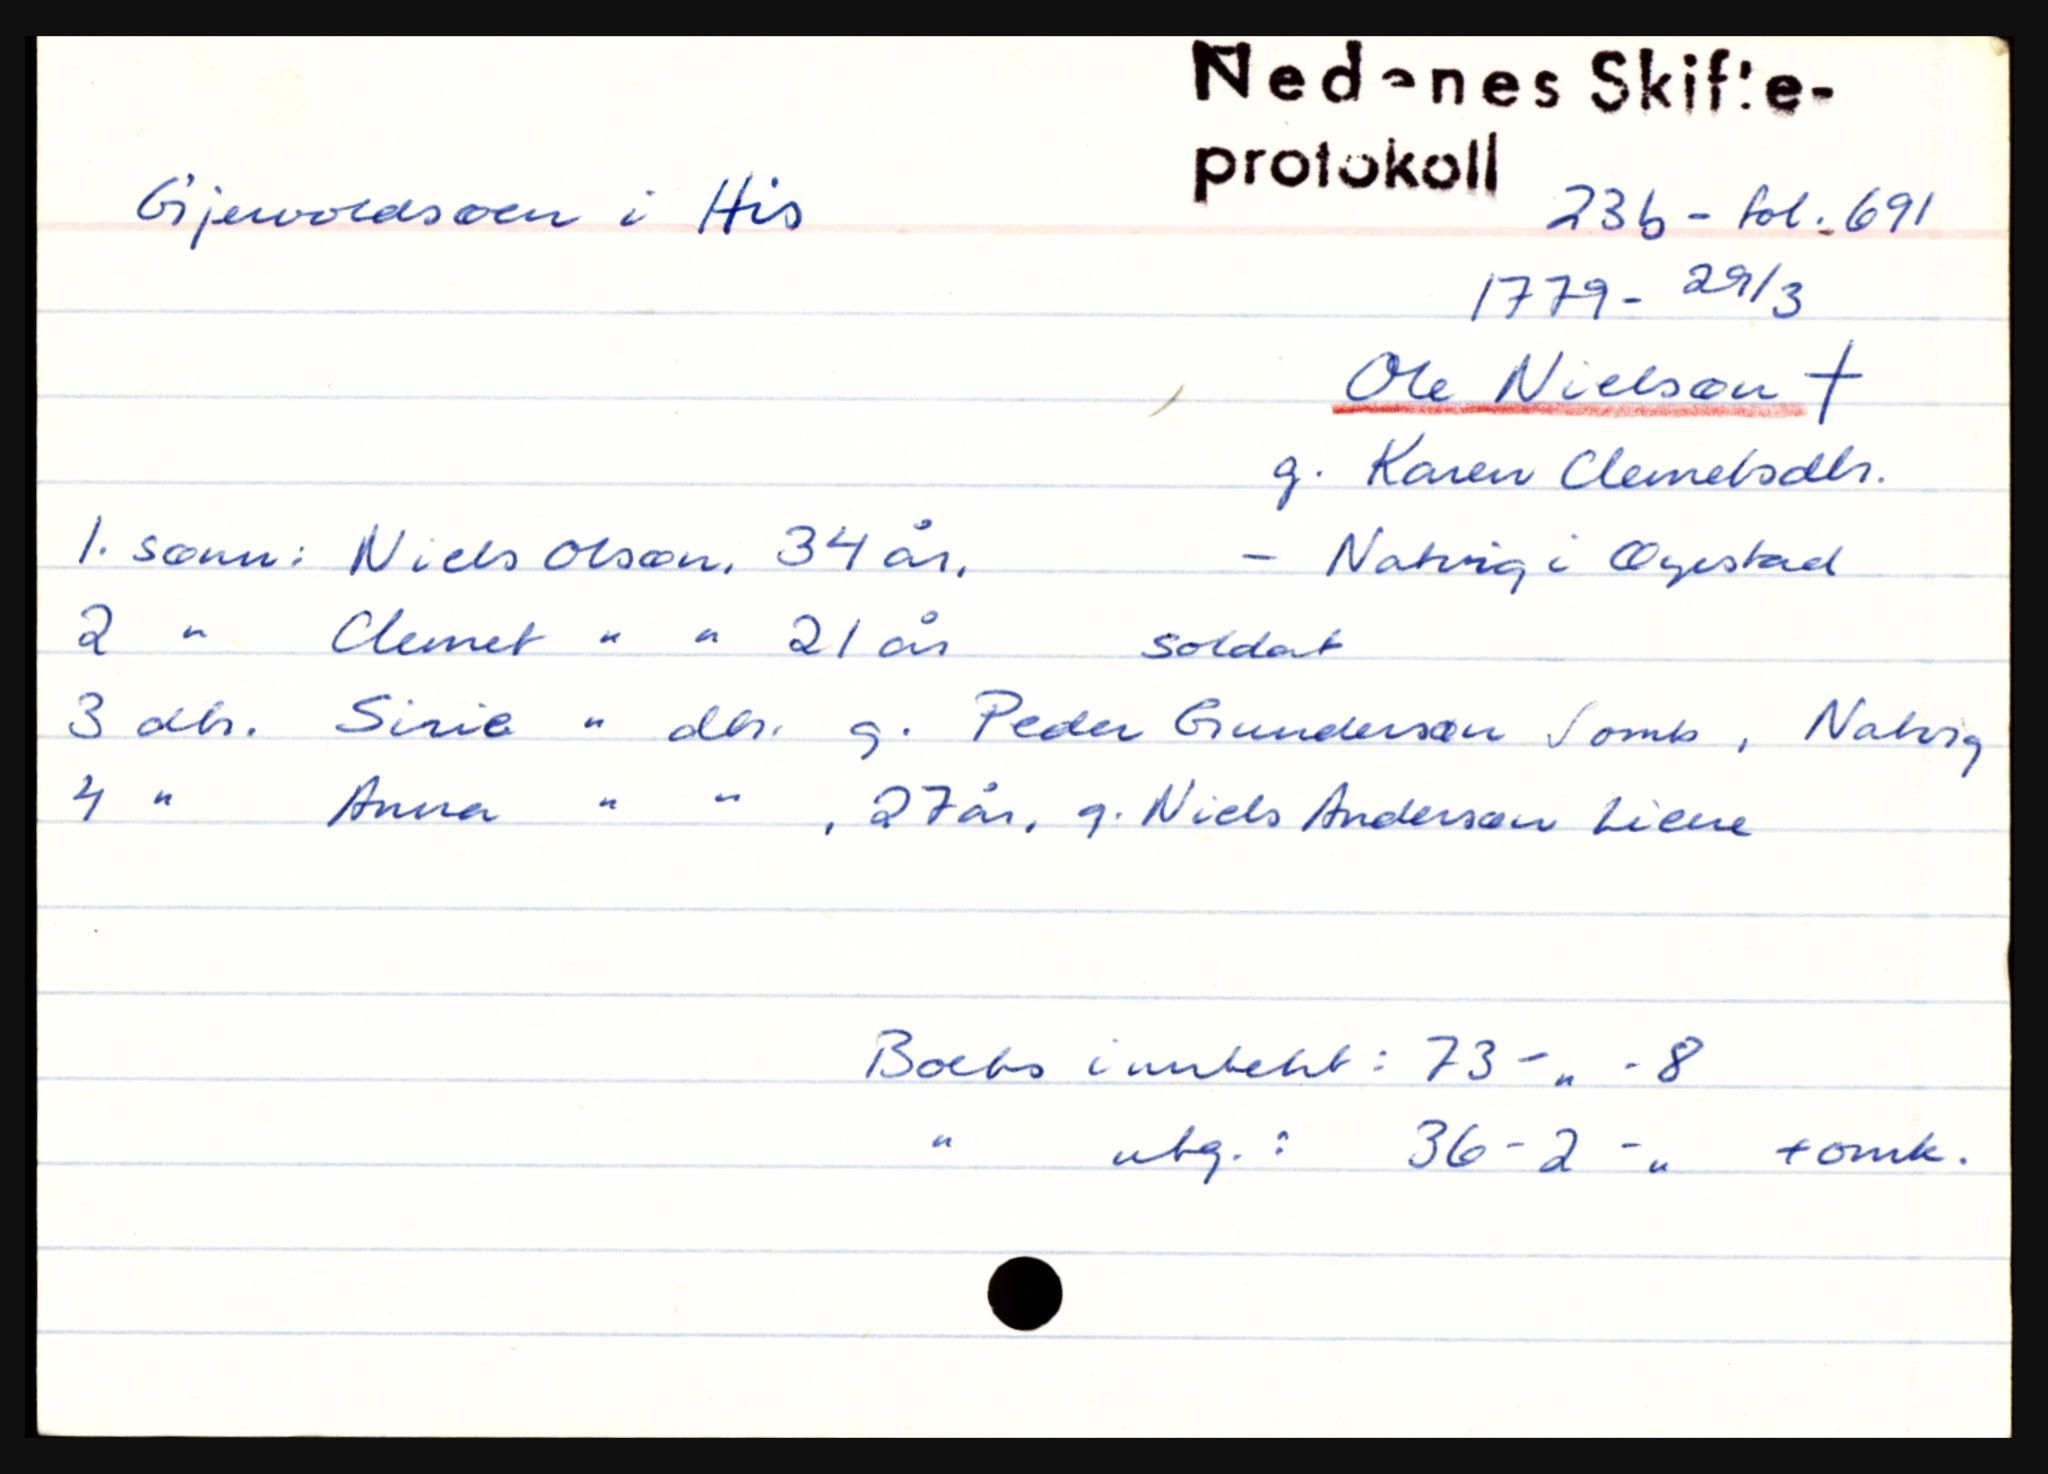 Nedenes Skifte-
protokoll
Gjervoldsøen i His
23b - fol. 691
1779 - 29/3
Ole Nielsøn †
g. Karen Clemetsdtr.
1. sønn: Niels Olsøn, 34 år, - Natvig i Øyestad
2 " Clemet " " 21 år soldat
3 dtr. Sirie " dtr. g. Peder Gundersøn Somb, Natvig
4 " Anna " " , 27 år, g. Niels Andersøn Liene
Boets inntekt: 73 - " - 8
" utg.: 36 - 2 - " + omk.